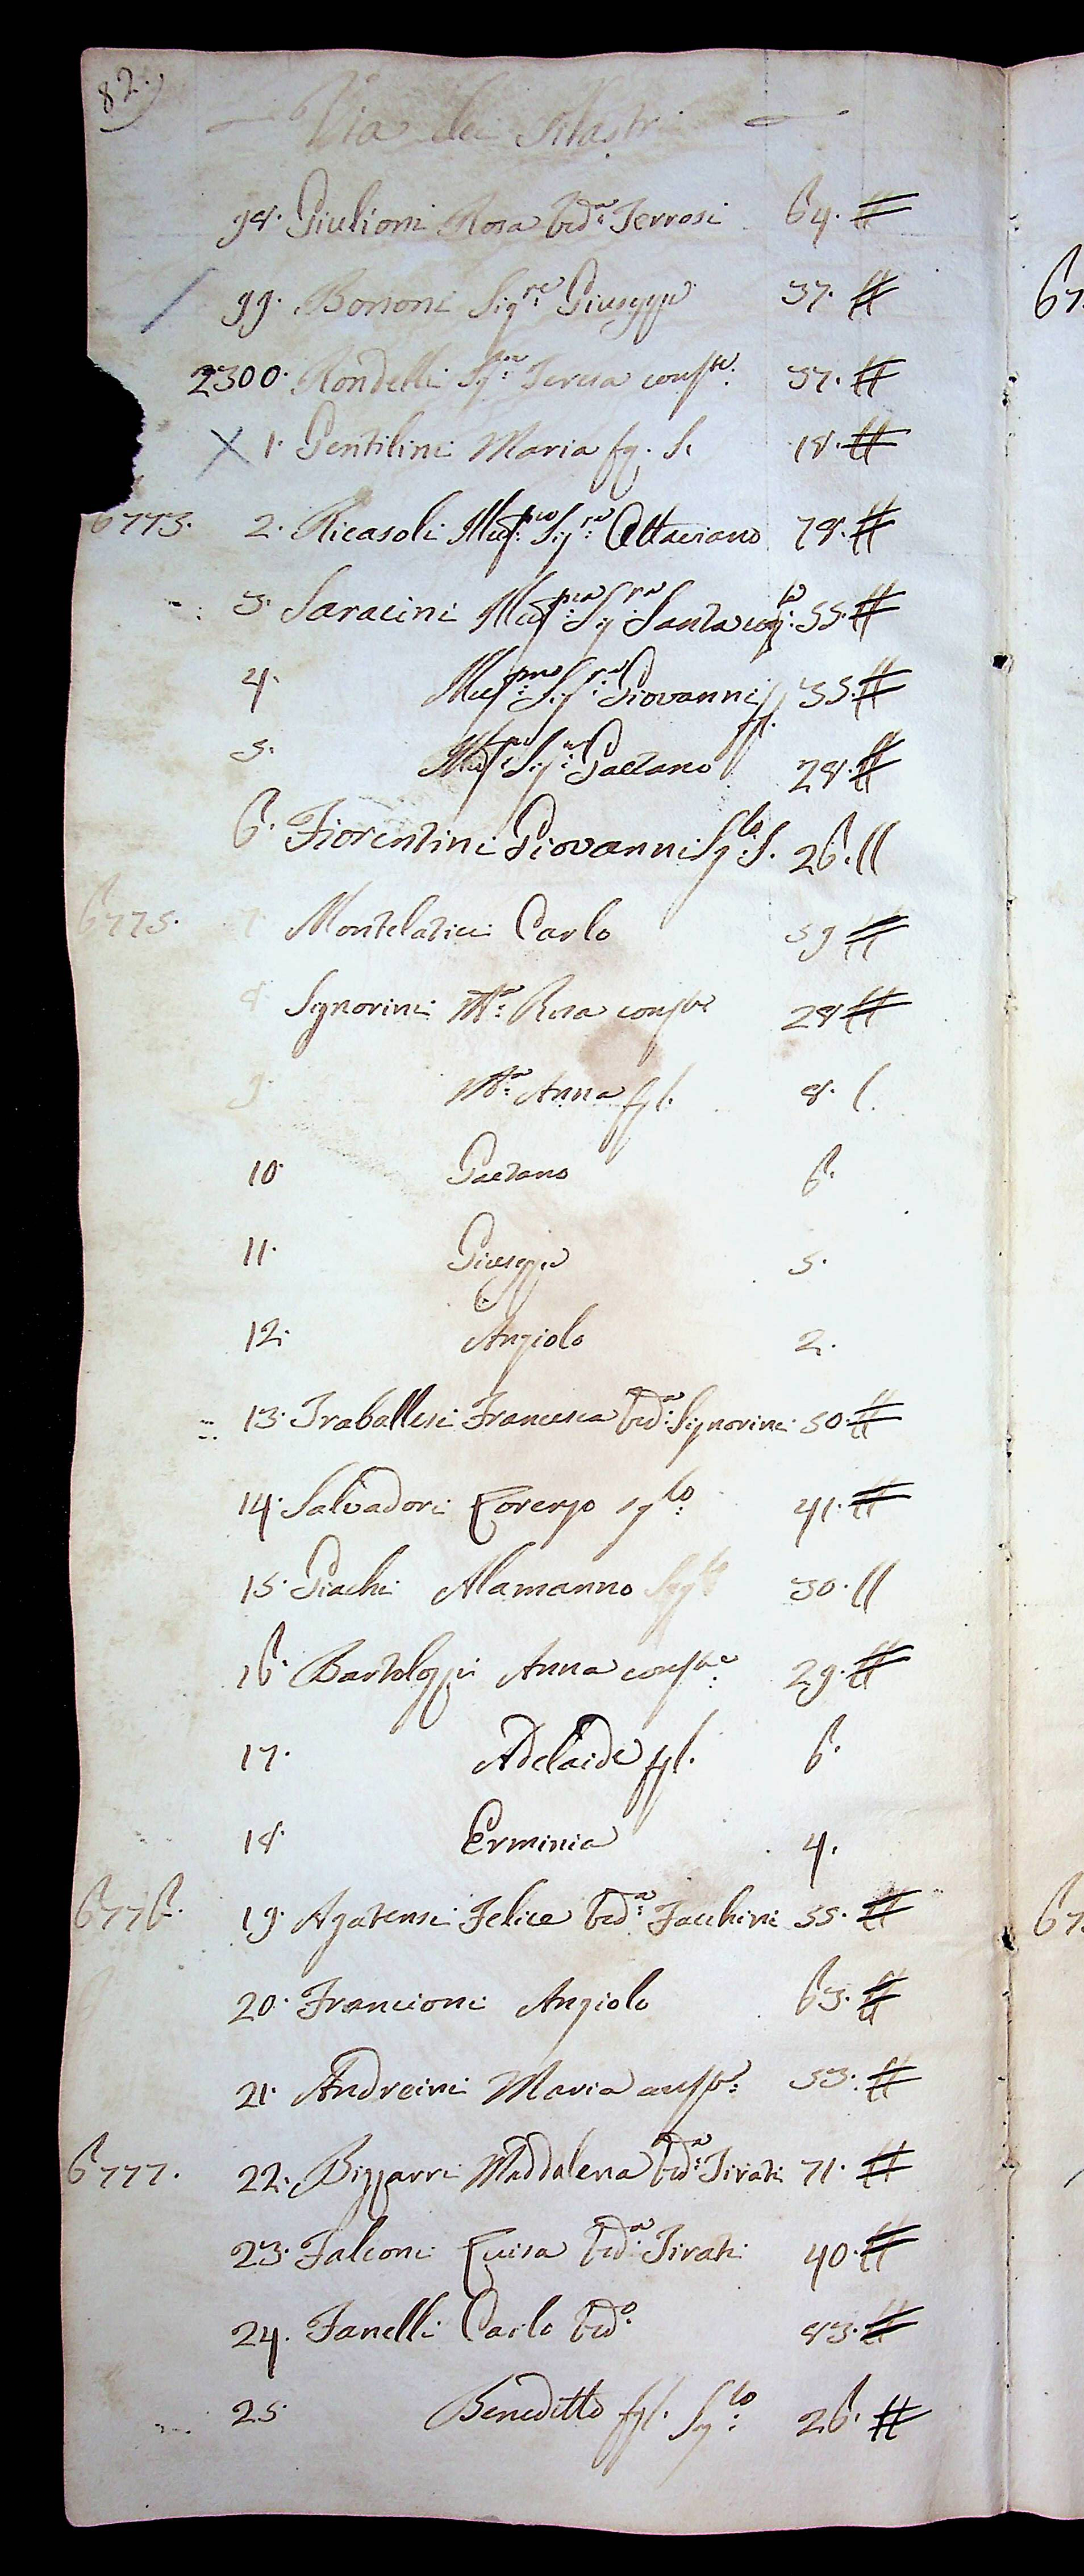 82.
Via dei Pilastri
98. Giulioni Rosa vedª Terrosi 64. #
99. Bononi Sigre Giuseppe 37. #
2300. Rondelli Sigra Teresa conste 37. #
X 1. Gentilini Maria fg. S. 18. #
6773. 2. Ricasoli Illmo Sigre Ottaviano 78. #
3. Saracini Illma Sigra Santa cogta 55. #
4. Illmo Sigre Giovanni fgl. 35. #
5. Illmo Sigre Gaetano 28. #
6. Fiorentini Giovanni Sgto S. 26. //
6775. 7. Montelatici Carlo 59 #
8 Signorini Mª Rosa conste 28 #
9. Mª Anna fgl. 8. /.
10 Gaetano 6.
11. Giuseppe 5.
12. Angiolo 2.
13. Traballesi Francesca vedª Signorini 50. #
14. Salvadori Lorenzo sgto 41. #
15. Giachi Alamanno Sgto 30. //
16. Bartolozzi Anna conste 29. #
17. Adelaide fgl. 6.
18. Erminia 4.
6776. 19. Agatensi Felice vedª Facchini 55. #
20. Francioni Angiolo 63. #
21. Andreini Maria conste 53. #
6777. 22. Bizzarri Maddalena vedª Tirati 71. #
23. Falconi Luisa vedª Tirati 40. #
24. Fanelli Carlo vedº 83. #
25. Beneditto fgl. Sgto 26. #